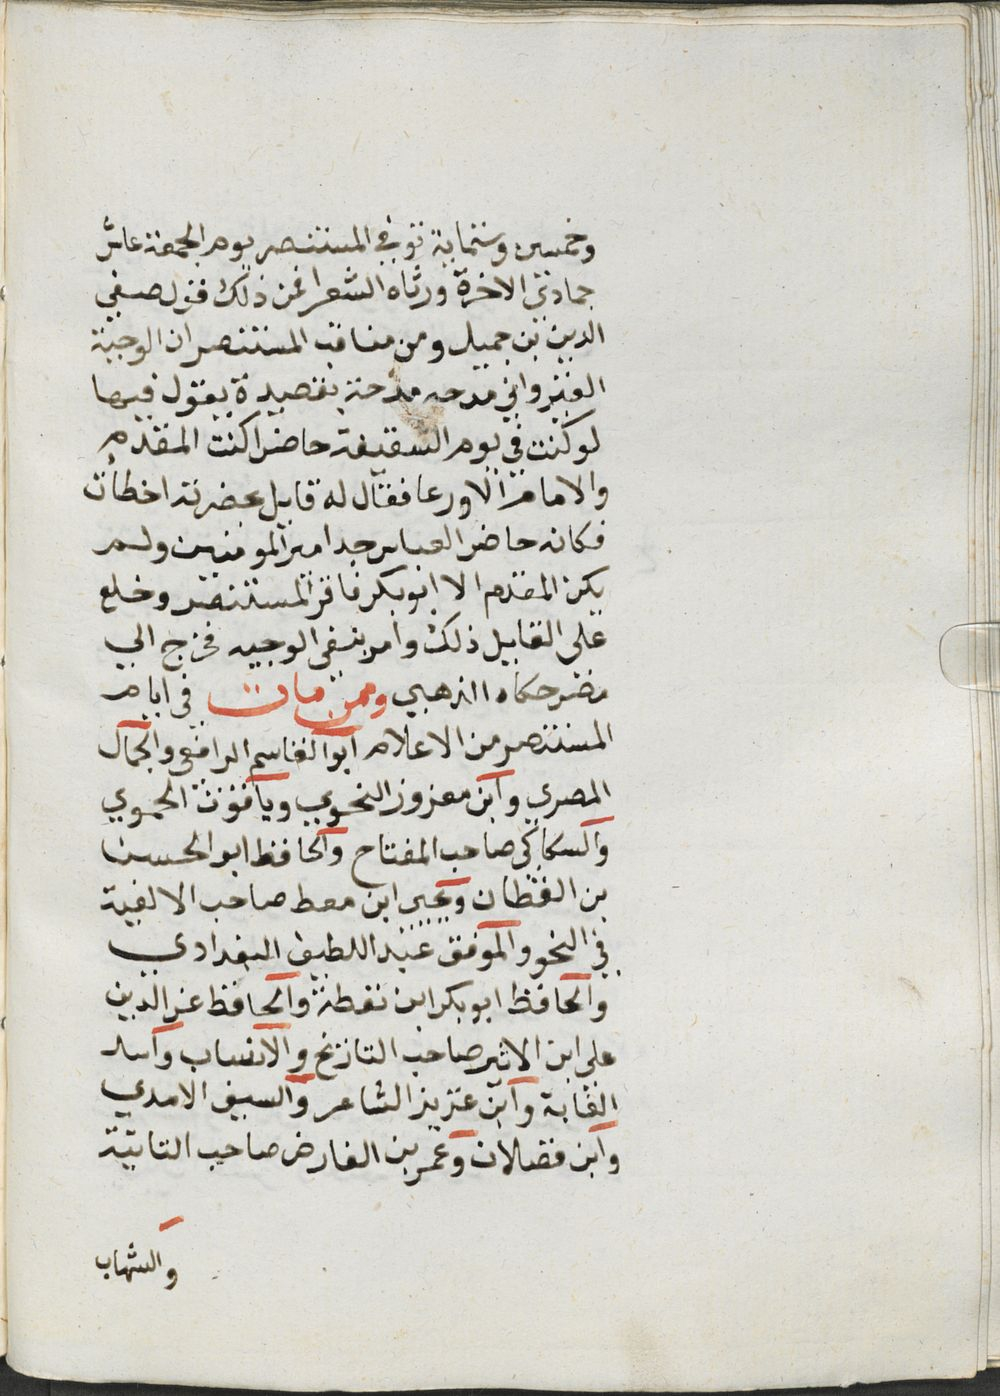 وخمسين وستماية توفي المستنصر يوم الجمعة عاشر
جمادي الاخرة ورثاه الشعرا فمن ذلك قول صفي
الدين بن جميل ومن مناقب المستنصر ان الوجيه
القيرواني مدحه مدحته بقصيدة يقول فيها
لو كنت في يوم السقيفة حاضرا كنت المقدم
والامام الاورعا فقال له قايل بحضرته اخطات
فكانه حاضر العباس جد امير المومنين ولم
يكن المقدم الا ابو بكر فاقر المستنصر وخلع
على القايل ذلك وامر بنفي الوجيه فخرج الي
مصر حكاه الذهبي وممن مات في ايام
المستنصر من الاعلام ابو القاسم الرافعي والجمال
المصري وابن معزوز النحوي وياقوت الحموي
والسكاكي صاحب المفتاح والحافظ ابو الحسن
بن القطان ويحيي ابن معط صاحب الالفية
في النحو والموفق عبد اللطيف البغدادي
والحافظ ابو بكر ابن نقطة والحافظ عز الدين
على ابن الاثير صاحب التاريخ والانساب واسد
الغابة وابن عزيز الشاعر والسيف الامدي
وابن فضلان وعمر بن الفارض صاحب التايية
والشهاب